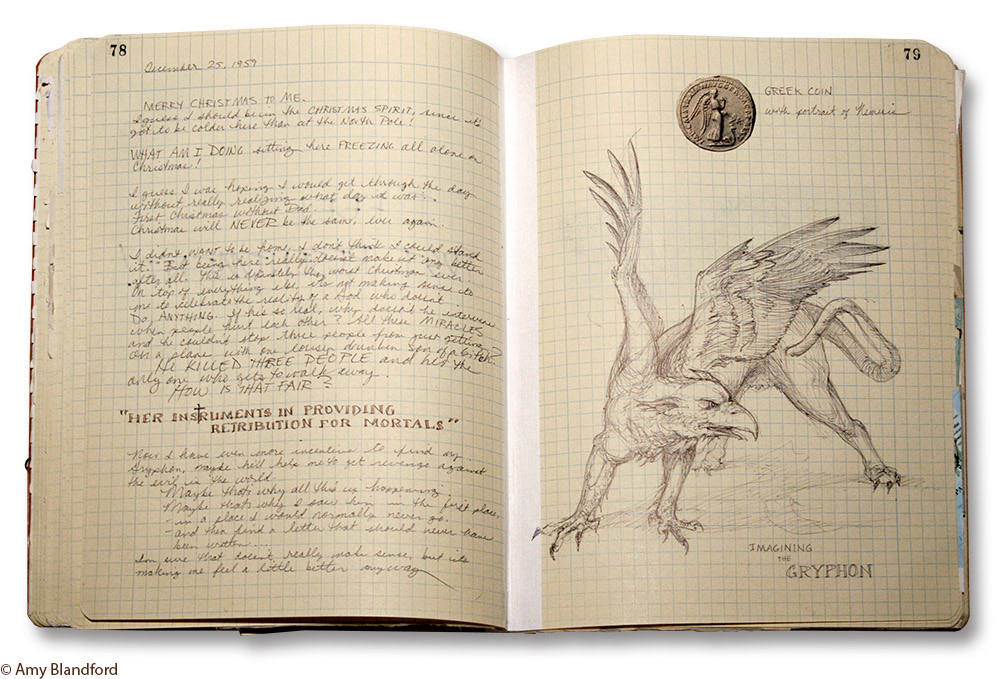 78
December 25, 1959
MERRY CHRISTMAS TO ME.
I guess I should be in the CHRISTMAS SPIRIT, since it's
got to be colder here than at the North Pole!
WHAT AM I DOING sitting here FREEZING all alone on
Christmas!
I guess I was hoping I would get through the day
without really realizing what day it was.
First Christmas without Dad.
Christmas will NEVER be the same, ever again.
I didn't WANT to be home, I don't think I could stand
it. But being here really doesn't make it any better
after all. This is definitely the worst Christmas ever.
On top of everything else, it's not making sense to
me to celebrate the reality of a God who doesn't
Do ANYTHING. If he's so real, why doesn't he intervene
when people hurt each other? All these MIRACLES
and he couldn't stop three people from just getting
on a plane with one lousey drunken son of a bitch?
He KILLED THREE PEOPLE and he's the
only one who gets to walk away.
HOW IS THAT FAIR?
"HER INSTRUMENTS IN PROVIDING
RETRIBUTION FOR MORTALS"
Now I have even more incentive to find my
Gryphon, maybe he'll help me to get revenge against
the evil in the world.
Maybe that's why all this is happening.
Maybe that's why I saw him in the first place,
- in a place I would normally never go.
- and then find a letter that should never have
been written.
I'm sure that doesn't really make sense, but it's
making me feel a little better anyway
79
GREEK COIN
with portrait of Nemesis
IMAGINING
THE
GRYPHON
© Amy Blandford